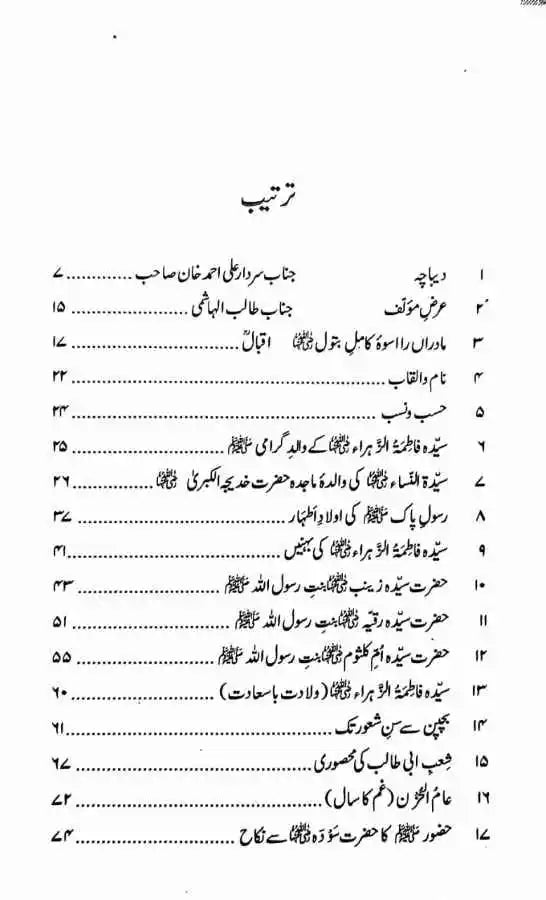 ترتیب
۱ دیباچہ جناب سردار علی احمد خان صاحب ............. ۷
۲ عرضِ مؤلف جناب طالب الہاشمی ...................... ۱۵
۳ مادراں را اسوۂ کامل بتول رضی اللہ عنہا اقبالؒ ................................ ۱۷
۴ نام و القاب ............................................................ ۲۲
۵ حسب و نسب ............................................................ ۲۴
۶ سیّدہ فاطمۃ الزہراء رضی اللہ عنہا کے والدِ گرامی ﷺ ............................ ۲۵
۷ سیّدۃ النساء رضی اللہ عنہا کی والدۂ ماجدہ حضرت خدیجۃ الکبریٰ رضی اللہ عنہا ................ ۲۶
۸ رسولِ پاک ﷺ کی اولادِ اطہار ........................................ ۳۷
۹ سیّدہ فاطمۃ الزہراء رضی اللہ عنہا کی بہنیں ........................................ ۴۱
۱۰ حضرت سیّدہ زینب رضی اللہ عنہا بنتِ رسول اللہ ﷺ ........................ ۴۳
۱۱ حضرت سیّدہ رقیّہ رضی اللہ عنہا بنتِ رسول اللہ ﷺ ........................ ۵۱
۱۲ حضرت سیّدہ اُمِّ کلثوم رضی اللہ عنہا بنتِ رسول اللہ ﷺ ........................ ۵۵
۱۳ سیّدہ فاطمۃ الزہراء رضی اللہ عنہا (ولادت باسعادت) ........................ ۶۰
۱۴ بچپن سے سنِ شعور تک ................................................ ۶۱
۱۵ شعبِ ابی طالب کی محصوری ........................................ ۶۷
۱۶ عامُ الحُزن (غم کا سال) ........................................ ۷۲
۱۷ حضور ﷺ کا حضرت سَودَہ رضی اللہ عنہا سے نکاح ............................ ۷۴